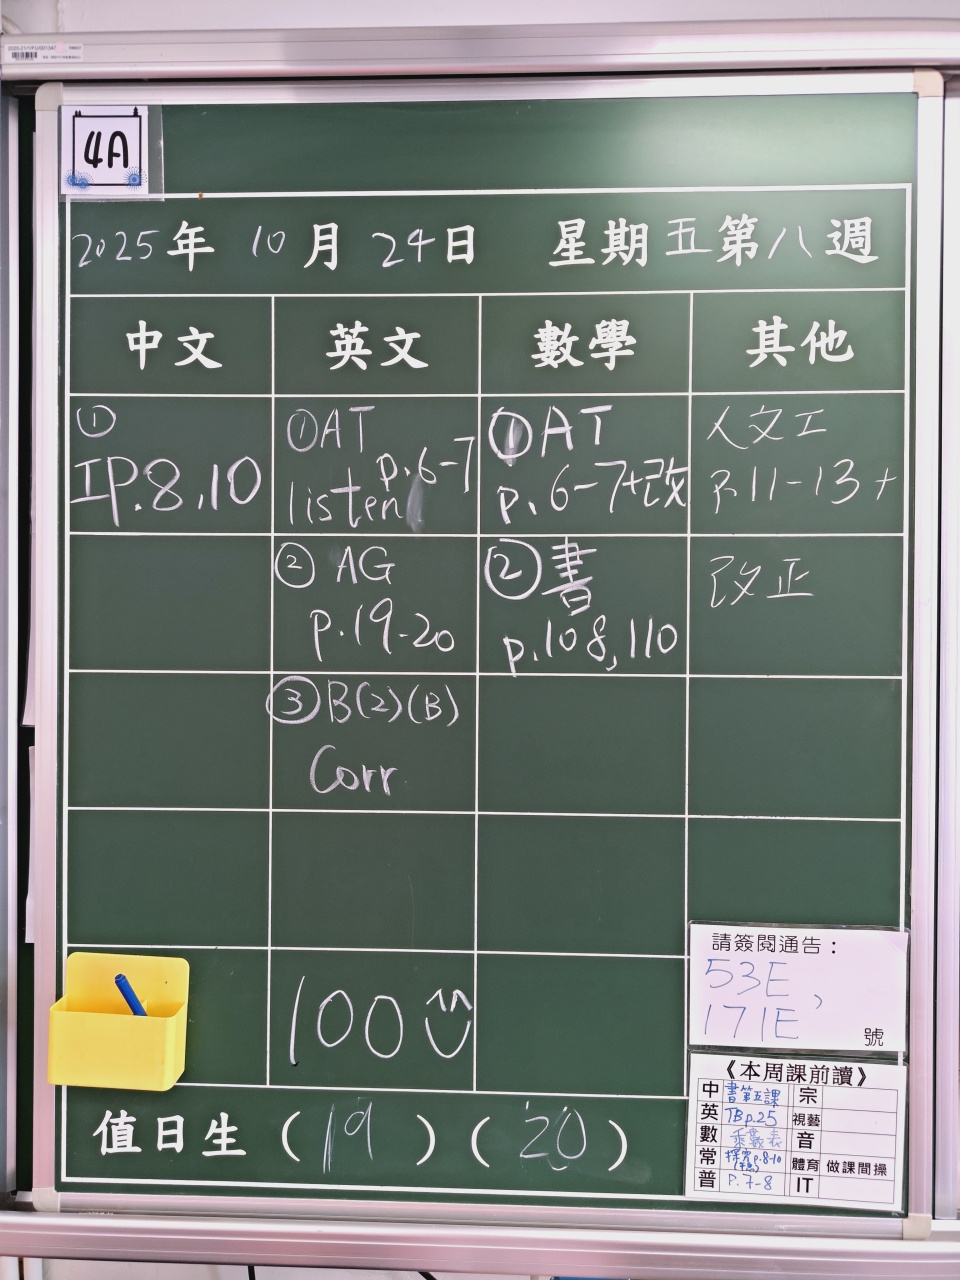 4A
2025年 10月 24日 星期五第八週
中文 英文 數學 其他
①
IP.8,10
①AT
listen p.6-7
①AT
p.6-7+改
人文工
p.11-13+
②AG
p.19-20
②書
p.108,110
改正
③B(2)(B)
Corr
100
請簽閱通告：
53E,
171E
號
《本周課前讀》
中 書第五課 宗
英 TBp.25 視藝
數 乘數表 音
常 探究p.8-10 體育 做課間操
普 P.7-8 IT
值日生 (19) (20)